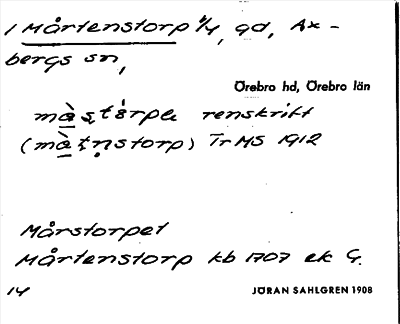 1 Mårtenstorp 1/4, gd, Ax-
bergs sn,
Örebro hd, Örebro län
mà̱ṣt́órpa renskrift
(mà̱ṭṇstorp) Tr MS 1912
Mårstorpet
Mårtenstorp kb 1707 ek G.
14
JÖRAN SAHLGREN 1908